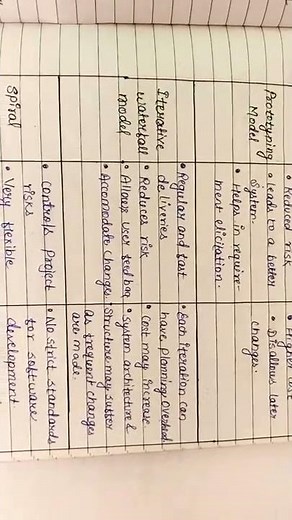 Prototyping
Model
• Reduced risk
• leads to a better
system.
• Helps in require-
ment elicitation.
• Higher cost
• Disallows later
changes.
Iterative
waterfall
model
• Regular and fast
deliveries
• Reduces risk
• Allows user feedback
• Accomodate changes
• Each iteration can
have planning overhead
• Cost may increase
• System architecture &
structure may suffer
as frequent changes
are made.
Spiral
• controls project
risks
• Very flexible
• No strict standards
for software
development